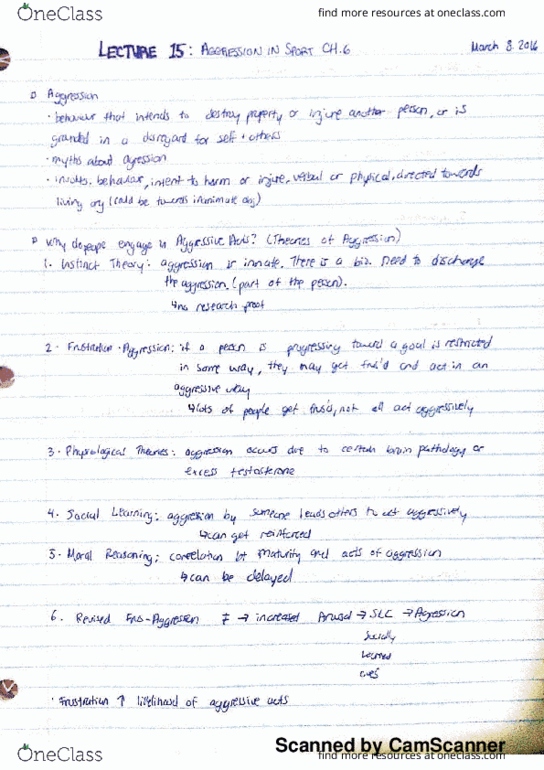 OneClass
find more resources at oneclass.com
LECTURE 15: AGGRESSION IN SPORT CH.6
March 8. 2016
Aggression
• behaviour that intends to destroy property or injure another person, or is
grounded in a disregard for self + others
• myths about agression
• involves behaviour, intent to harm or injure, verbal or physical, directed towards
living org (could be towards inanimate obj)
Why do people engage in Aggressive Acts? (Theories of Aggression)
1. Instinct Theory: aggression is innate. There is a bio. need to discharge
the aggression. (part of the person).
↳ no research proof
2. Frustration-Aggression: if a person is progressing toward a goal is restricted
in some way, they may get frus'd and act in an
aggressive way
↳ lots of people get frus'd, not all act aggressively
3. Physiological Theories: aggression occurs due to certain brain pathology or
excess testosterone
4. Social Learning: aggression by someone leads others to act aggressively
↳ can get reinforced
5. Moral Reasoning: correlation bt maturity and acts of aggression
↳ can be delayed
6. Revised Frus-Aggression F → increased Arousal → SLC → Agression
Socially
Learned
Cues
• Frustration ↑ likelihood of aggressive acts
Scanned by CamScanner
OneClass
find more resources at oneclass.com